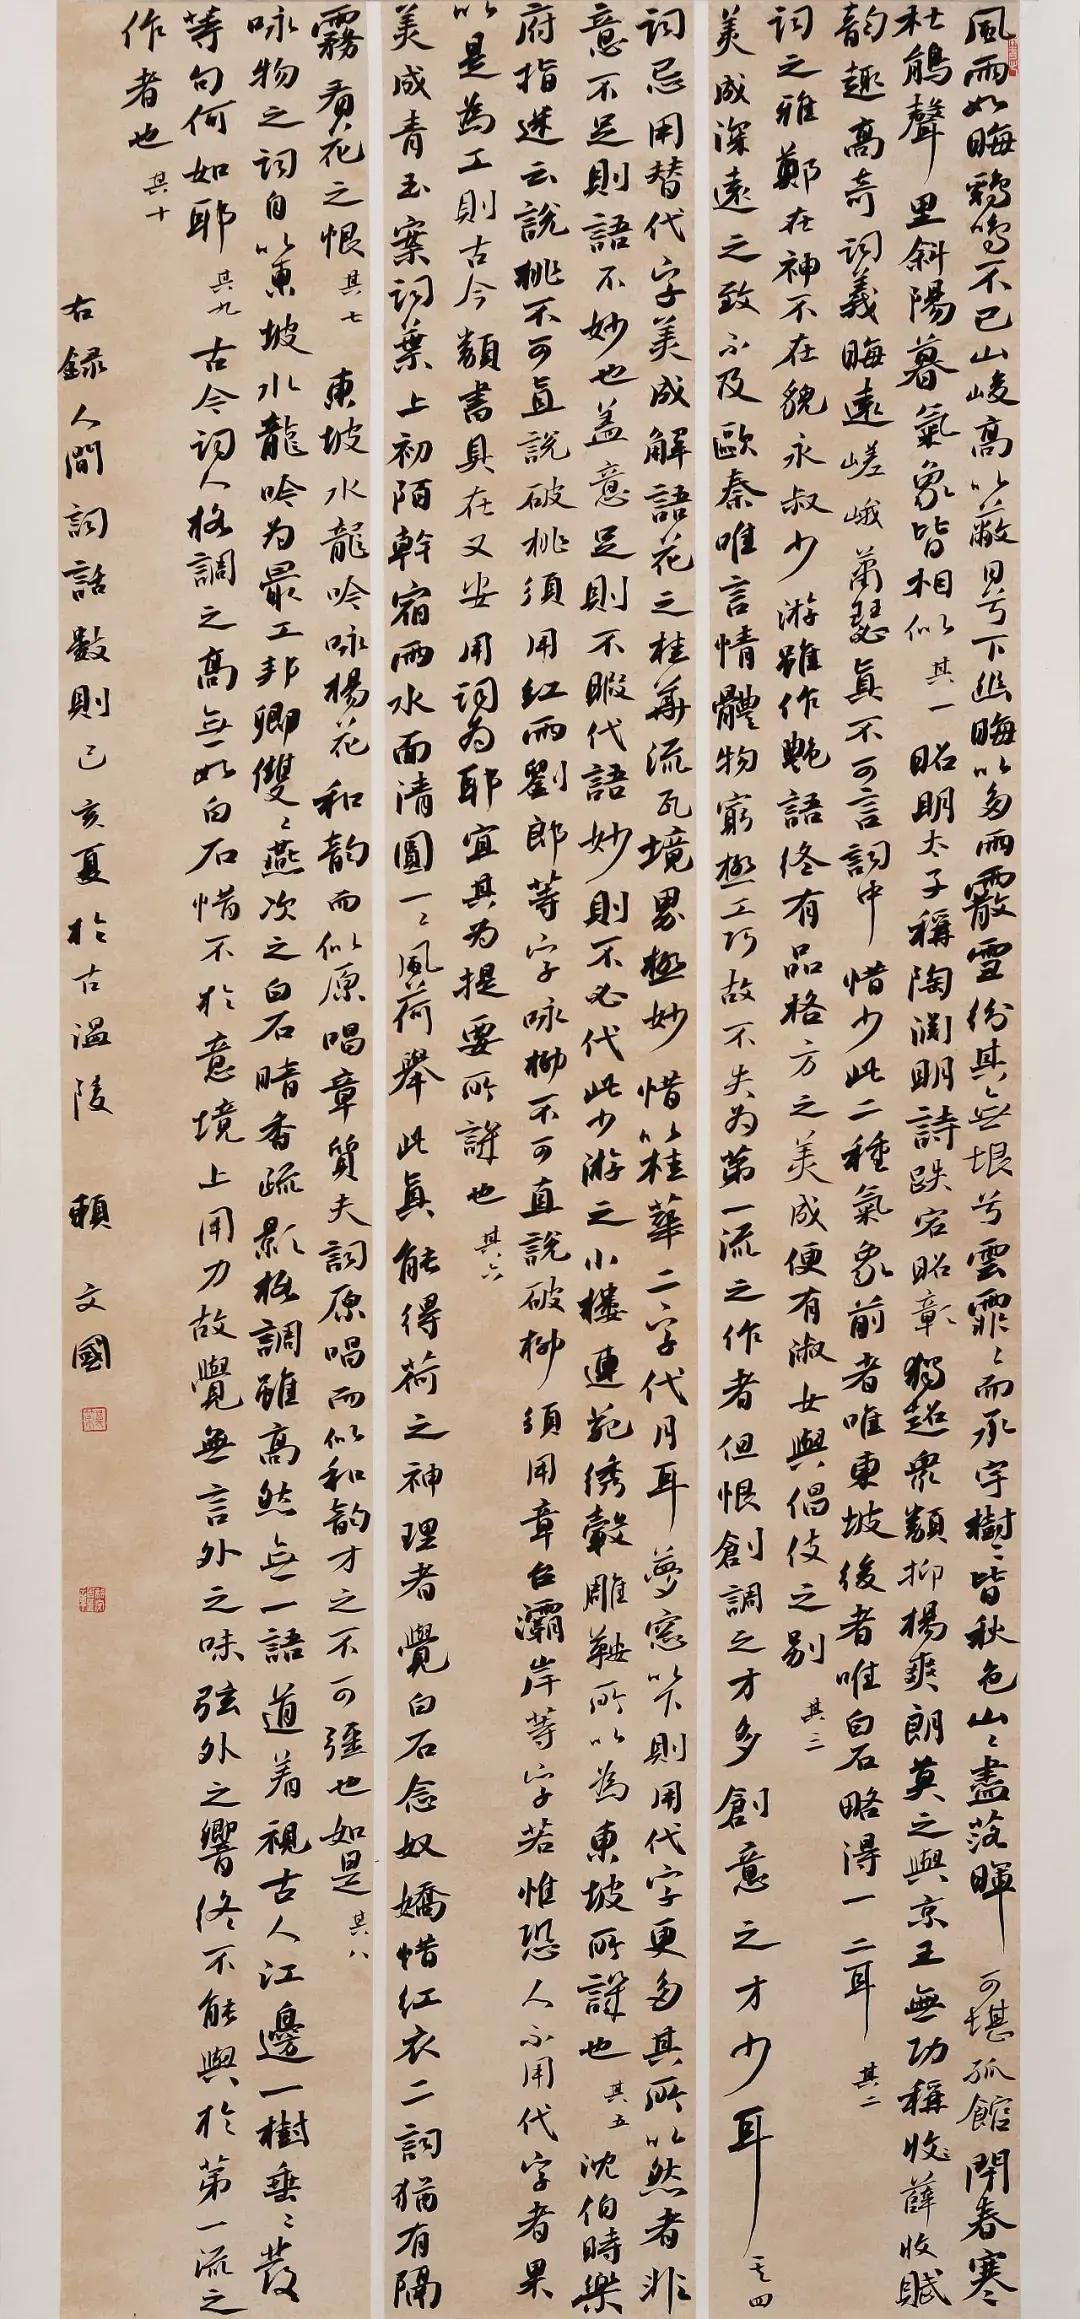 風雨如晦鷄鳴不已山峻高以蔽日兮下幽晦以多雨霰雪紛其無垠兮雲霏霏而承宇樹樹皆秋色山山盡落暉可堪孤館閉春寒
杜鵑聲里斜陽暮氣象皆相似其一昭明太子稱陶淵明詩跌宕昭彰獨超衆類抑揚爽朗莫之與京王無功稱收薛收賦
韵趣高奇詞義晦遠嵯峨蕭瑟真不可言詞中惜少此二種氣象前者唯東坡後者唯白石略得一二耳其二
詞之雅鄭在神不在貌永叔少游雖作艷語終有品格方之美成便有淑女與倡伎之别其三
美成深遠之致不及歐秦唯言情體物窮極工巧故不失為第一流之作者但恨創調之才多創意之才少耳其四
詞忌用替代字美成解語花之桂華流瓦境界極妙惜以桂華二字代月耳夢窗以下則用代字更多其所以然者非
意不足則語不妙也蓋意足則不暇代語妙則不必代此少游之小樓連苑綉轂雕鞍所以為東坡所譏也其五沈伯時樂
府指迷云說桃不可直說破桃須用紅雨劉郎等字咏柳不可直說破柳須用章台灞岸等字若惟恐人不用代字者果
以是為工則古今類書具在又安用詞為耶宜其為提要所譏也其六
美成青玉案詞葉上初陽幹宿雨水面清圓一一風荷舉此真能得荷之神理者覺白石念奴嬌惜紅衣二詞猶有隔
霧看花之恨其七東坡水龍吟咏楊花和韵而似原唱章質夫詞原唱而似和韵才之不可强也如是其八
咏物之詞自以東坡水龍吟為最工邦卿雙雙燕次之白石暗香疏影格調雖高然無一語道着視古人江邊一樹垂垂發
等句何如耶其九古今詞人格調之高無如白石惜不於意境上用力故覺無言外之味弦外之響終不能與於第一流之
作者也其十
右録人間詞話數則己亥夏於古温陵賴文國